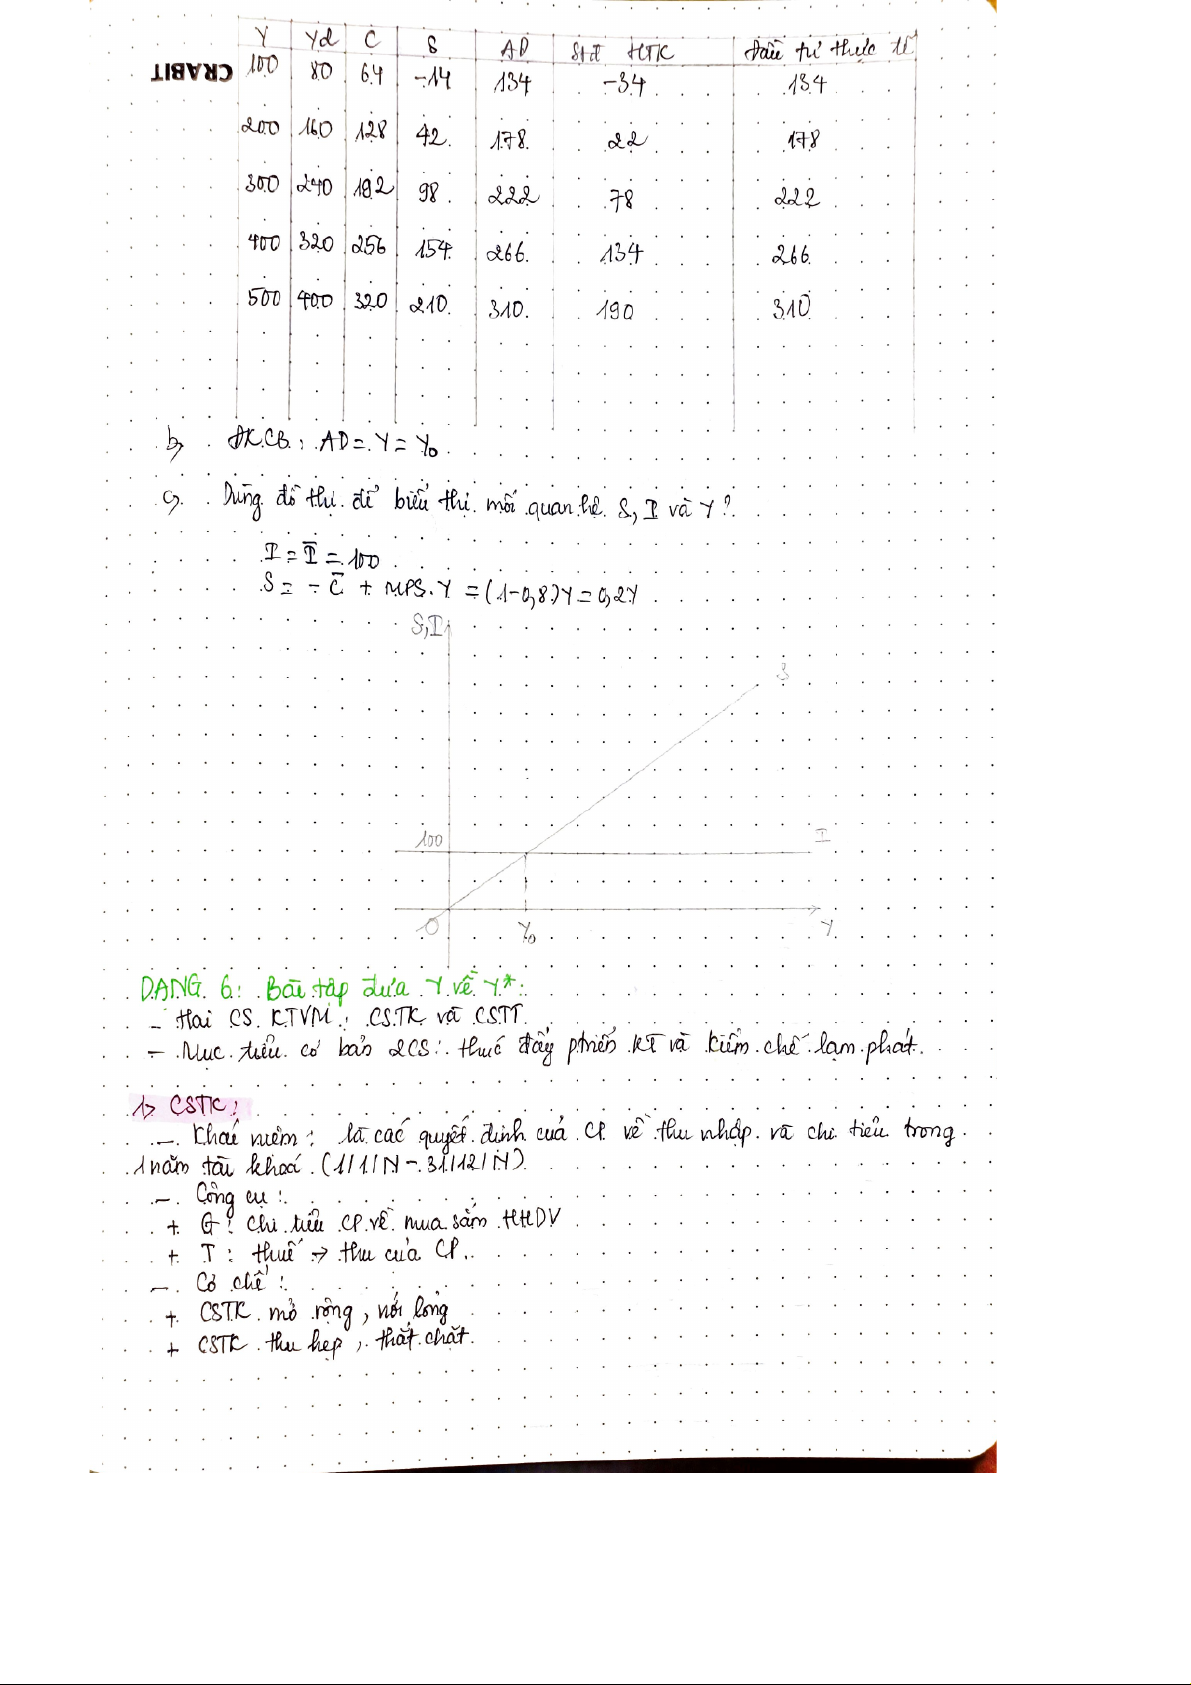 CRABIT
Y Yd C S AD S±I HTK Đầu tư thực tế
100 80 64 -14 134 -34 134
200 160 128 42 178 22 178
300 240 192 98 222 78 222
400 320 256 154 266 134 266
500 400 320 210 310 190 310
b, ĐKCB: AD = Y = Y₀
c, Dùng đồ thị để biểu thị mối quan hệ S, I và Y?
I = I̅ = 100
S = - C̅ + MPS.Y = (1-0,8)Y = 0,2Y
S,I
S
100 I
O Y₀ Y
DẠNG 6: Bài tập đưa Y về Y*:
- Hai CS KTVM: CSTK và CSTT
- Mục tiêu cơ bản 2CS: thúc đẩy phtriển KT và kiềm chế lạm phát.
1> CSTK:
- Khái niệm: là các quyết định của CP về thu nhập và chi tiêu trong
1 năm tài khoá (1/1/N - 31/12/N)
- Công cụ:
+ G: Chi tiêu CP về mua sắm HHDV
+ T: thuế → thu của CP.
- Cơ chế:
+ CSTK mở rộng, nới lỏng
+ CSTK thu hẹp, thắt chặt